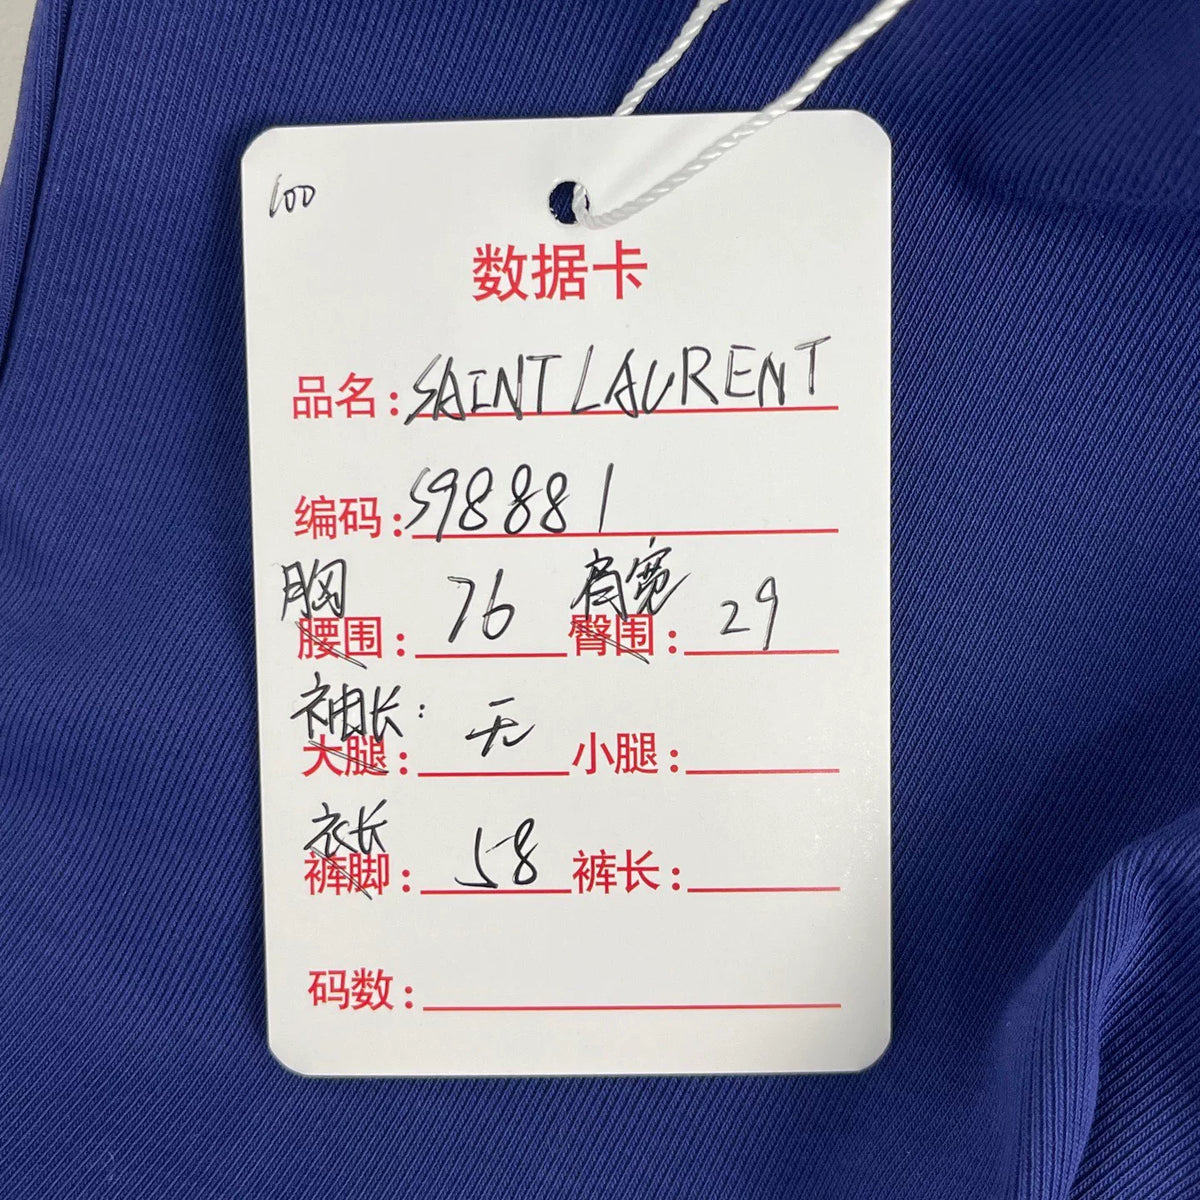 100
数据卡
品名: SAINT LAURENT
编码: S98881
胸 肩宽
腰围: 76 臀围: 29
袖长:
大腿: 无 小腿:
衣长
裤脚: 58 裤长:
码数: